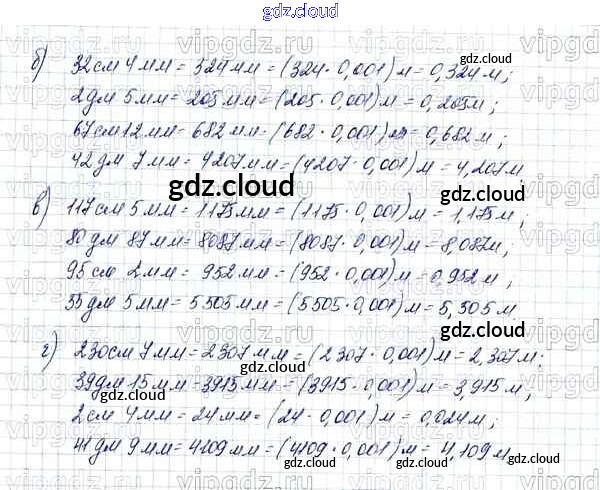 gdz.cloud
б) 32см 4мм = 324мм = (324 · 0,001)м = 0,324м;
2дм 5мм = 205мм = (205 · 0,001)м = 0,205м;
67см 12мм = 682мм = (682 · 0,001)м = 0,682м;
42дм 7мм = 4207мм = (4207 · 0,001)м = 4,207м.
gdz.cloud
в) 117см 5мм = 1175мм = (1175 · 0,001)м = 1,175м;
80дм 87мм = 8087мм = (8087 · 0,001)м = 8,087м;
95см 2мм = 952мм = (952 · 0,001)м = 0,952м;
55дм 5мм = 5505мм = (5505 · 0,001)м = 5,505м.
г) 230см 7мм = 2307мм = (2307 · 0,001)м = 2,307м;
39дм 15мм = 3915мм = (3915 · 0,001)м = 3,915м;
2см 4мм = 24мм = (24 · 0,001)м = 0,024м;
41дм 9мм = 4109мм = (4109 · 0,001)м = 4,109м.
gdz.cloud